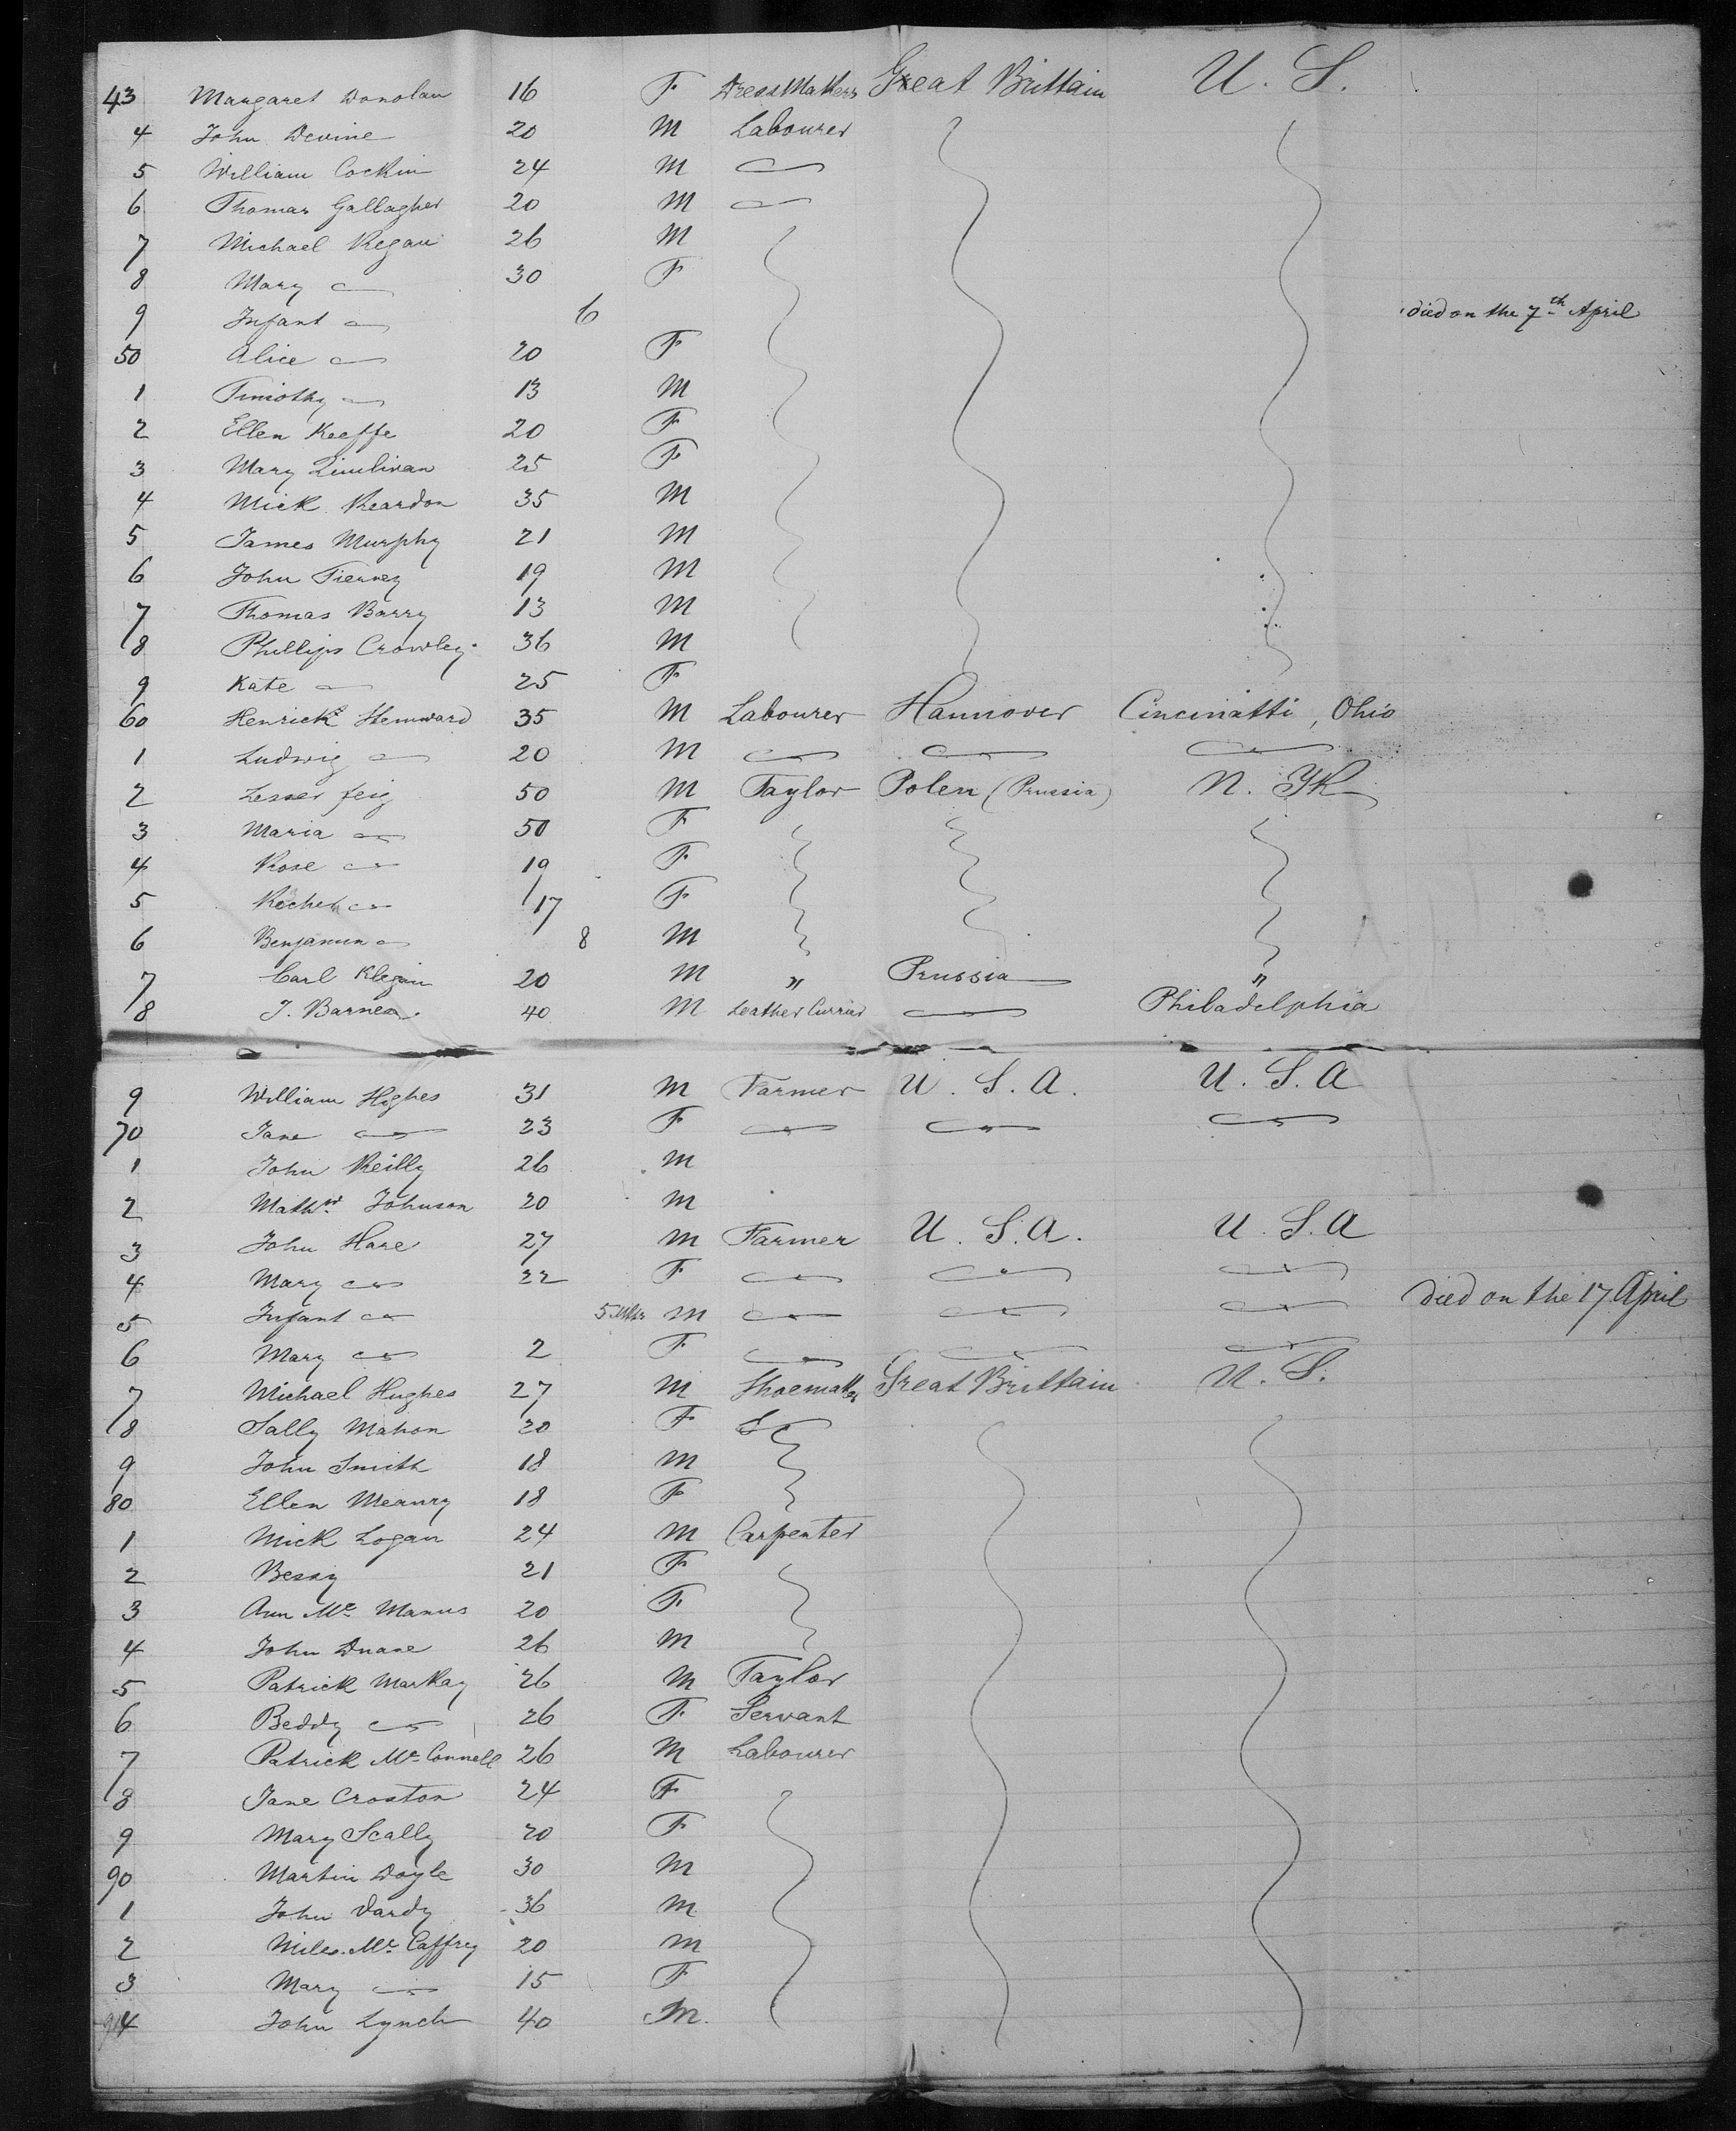 43 Margaret Donolan 16 F DressMakers Great Brittain U. S.
4 John Devine 20 M Labourer
5 William Cockin 24 M
6 Thomas Gallagher 20 M
7 Michael Regan 26 M
8 Mary 30 F
9 Infant 6 died on the 7th April
50 Alice 20 F
1 Timothy 13 M
2 Ellen Keeffe 20 F
3 Mary 25 F
4 Mick Reardon 35 M
5 James Murphy 21 M
6 John Tierney 19 M
7 Thomas Barry 13 M
8 Phillips Crowley 36 M
9 Kate 25 F
60 Henrick Stemward 35 M Labourer Hannover Cincinatti, Ohio
1 Ludwig 20 M
2 Lesser feig 50 M Taylor Polen (Prussia) N. Yk
3 Maria 50 F
4 Rose 19 F
5 Rochel 17 F
6 Benjamin 8 M
7 Carl 20 M " Prussia "
8 J. Barnea 40 M Leather Currier Philadelphia
9 William Highes 31 M Farmer U. S. A. U. S. A
70 Jane 23 F
1 John Reilly 26 M
2 Mathw Johnson 20 M
3 John Hare 27 M Farmer U. S. A. U. S. A
4 Mary 22 F
5 Infant 5 Mths M died on the 17 April
6 Mary 2 F
7 Michael Hughes 27 M Shoemaker Great Brittain U. S.
8 Sally Mahon 20 F S
9 John Smith 18 M
80 Ellen Meanry 18 F
1 Mick Logan 24 M Carpenter
2 Bessy 21 F
3 Ann Mc Manus 20 F
4 John Duane 26 M
5 Patrick Markay 26 M Taylor
6 Beddy 26 F Servant
7 Patrick Mc Connell 26 M Labourer
8 Jane Croston 24 F
9 Mary Scally 20 F
90 Martin Doyle 30 M
1 John Vardy 36 M
2 Miles Mc Caffrey 20 M
3 Mary 15 F
94 John Lynch 40 M.